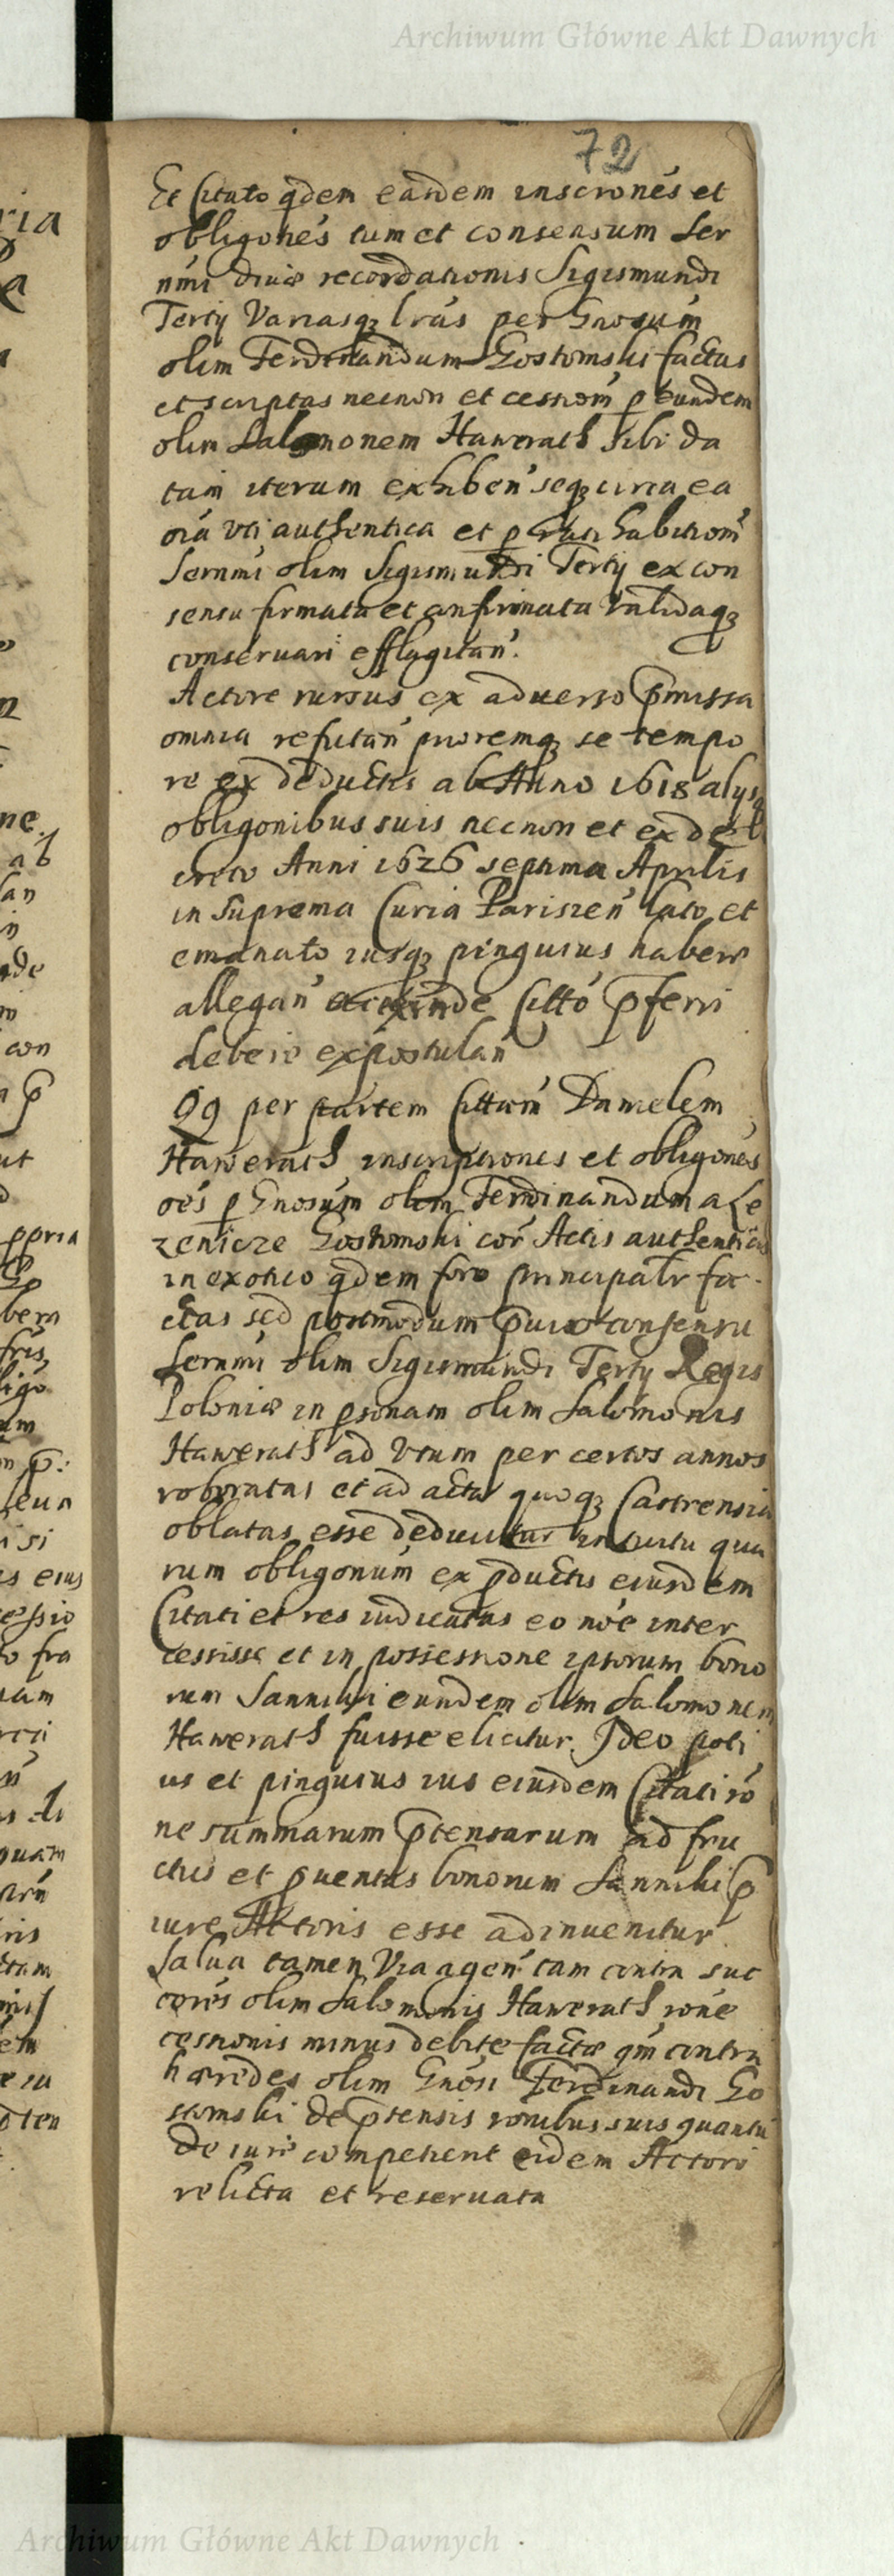 Archiwum Główne Akt Dawnych
72
Et Citato qdem easdem inscrones et
obligones tum et consensum Ser
nmi diuæ recordationis Sigismundi
Tertij Variasq lras per Gnosum
olim Ferdinandum Gostomski factas
et scriptas necnon et cessnom p eundem
olim Salomonem Hawerath sibi da
tam iterum exhiben seq circa ea
oia vti authentica et p
Sernmi olim Sigismundi Tertij ex con
sensu firmata et confirmata validaq
conseruari efflagitan.
Actore rursus ex aduerso pmissa
omnia refutan prioremq se tempo
re ex deductis ab Anno 1618 alysq
obligonibus suis necnon et ex de
creto Anni 1626 septima Aprilis
in Suprema Curia Parisien lato et
emanato iusq pinguius habere
allegan Citto pferri
debere expostulan
Qq per partem Cittam Danielem
Hawerath inscriptiones et obligones
oes p Gnosum olim Ferdinandum a Le
zenicze Gostomski cor Actis authenticis
in exotico qdem foro principalr fa
ctas sed postmodum pvio consensu
Sernmi olim Sigismundi Tertij Regis
Poloniæ in psonam olim Salomonis
Hawerath ad Vsum per certos annos
roboratas et ad acta quoq Castrensia
oblatas esse deducitur intuitu qua
rum obligonum ex pductis eiusdem
Citati et res iudicatas eo noe inter
cessisse et in possessione ipsorum bono
rum Sanniki eundem olim Salomonem
Hawerath fuisse elicitur. Ideo poti
us et pinguius ius eiusdem Citati ro
ne summarum ptensarum ad fru
ctus et puentus bonorum Sanniki p
iure Actoris esse adinuenitur
Salua tamen Via agen tam contra suc
cores olim Salomonis Hawerath rone
cessionis minus debite factæ qm contra
hæredes olim Gnosi Ferdinandi Go
stomski de ptensis ronibus suis quantu
de iure competient eidem Actori
relicta et reseruata
Archiwum Główne Akt Dawnych